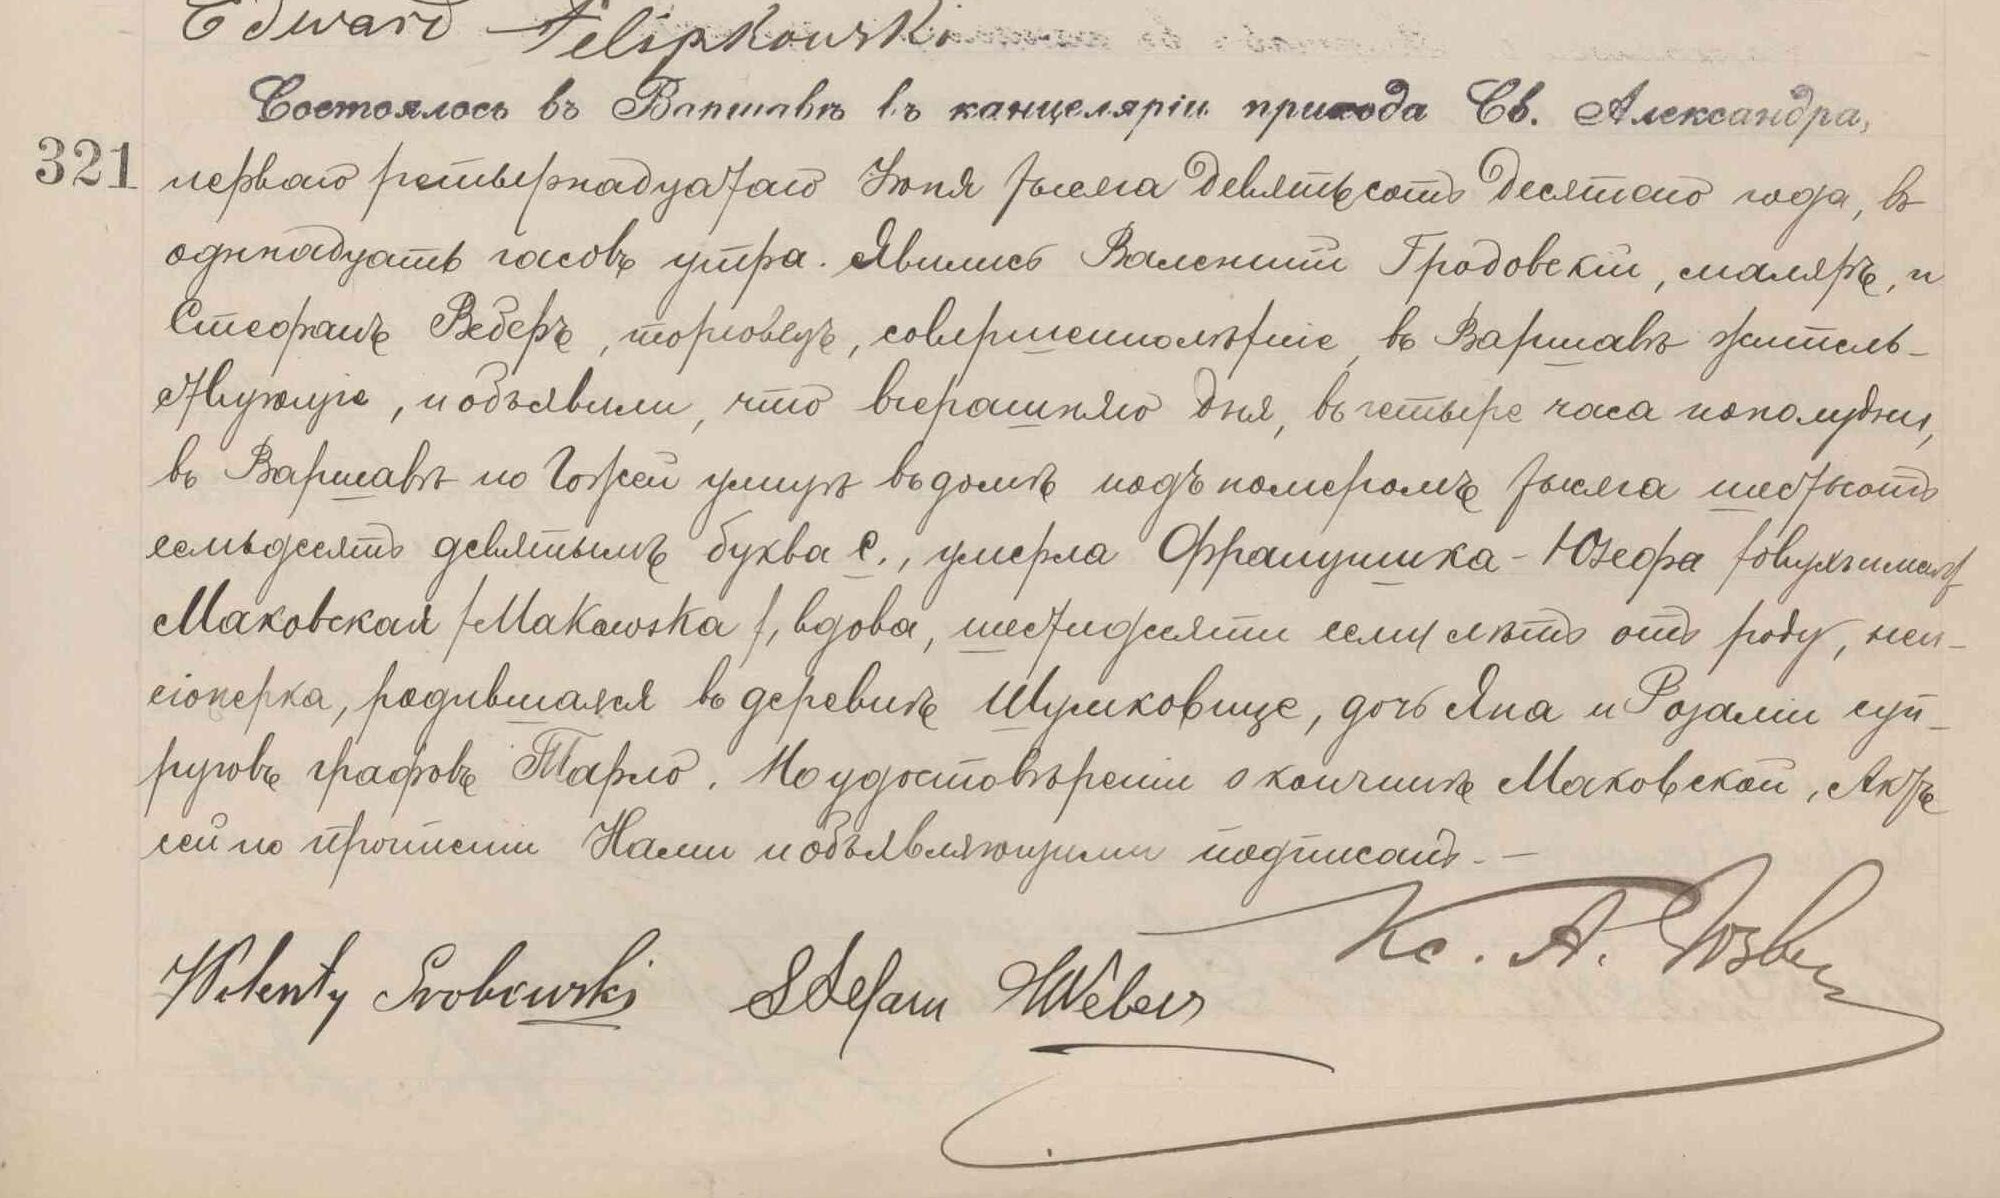 Edward Felipkowski
Состоялось въ Варшавѣ въ канцеляріи прихода Св. Александра,
321 перваго /четырнадцатаго Іюня тысяча девятьсотъ десятаго года, въ
одиннадцать часовъ утра. Явились Валентій Гродовскій, маляръ, и
Стефанъ Веберъ, торговецъ, совершеннолѣтніе, въ Варшавѣ житель-
ствующіе, и объявили, что вчерашняго дня, въ четыре часа пополудни,
въ Варшавѣ по Гожей улицѣ въ домѣ подъ номеромъ тысяча шестьсотъ
семьдесятъ девятымъ буква С., умерла Францишка-Юзефа /двухъ именъ/
Маковская /Makowska/, вдова, шестидесяти семи лѣтъ отъ роду, пен-
сіонерка, родившаяся въ деревнѣ Шумковице, дочь Яна и Розаліи суп-
руговъ графовъ Тарло. По удостовѣреніи о кончинѣ Маковской, Актъ
сей по прочтеніи Нами и объявляющими подписанъ. —
Walenty Grodowski Stefan Weber Кс. А.